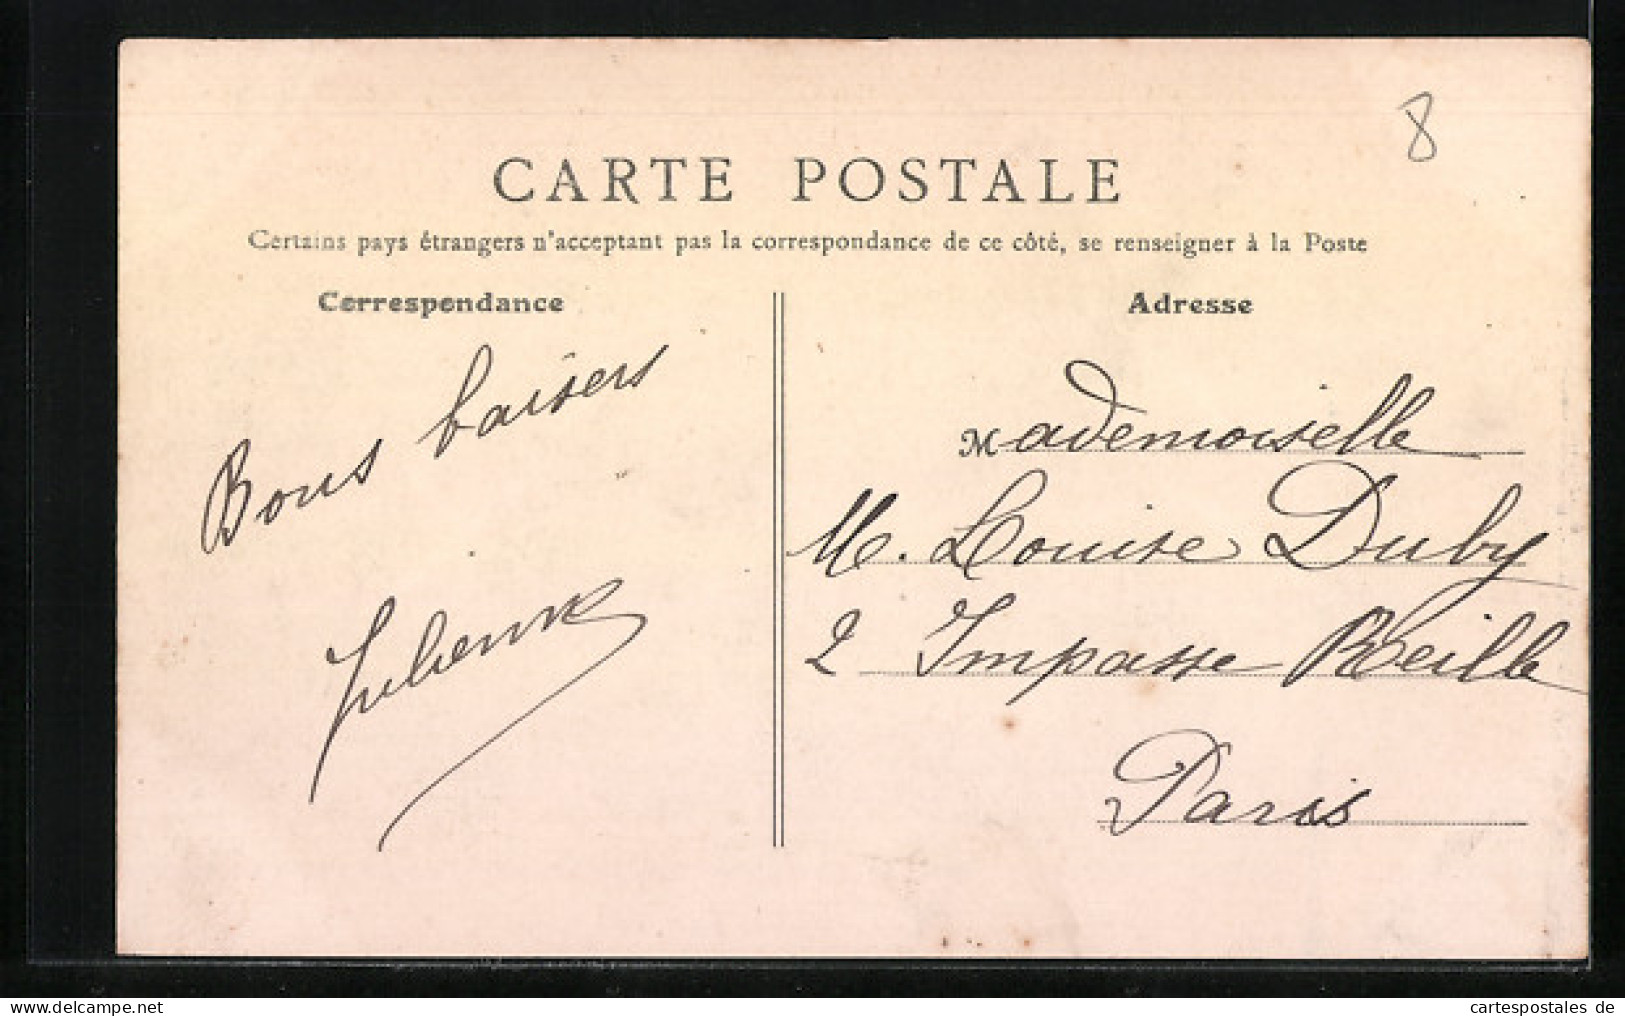 8
CARTE POSTALE
Certains pays étrangers n'acceptant pas la correspondance de ce côté, se renseigner à la Poste
Correspondance
Bons baisers
Adresse
Mademoiselle
M. Louise Duby
2 Impasse Reille
Paris
www.delcampe.net
cartespostales de